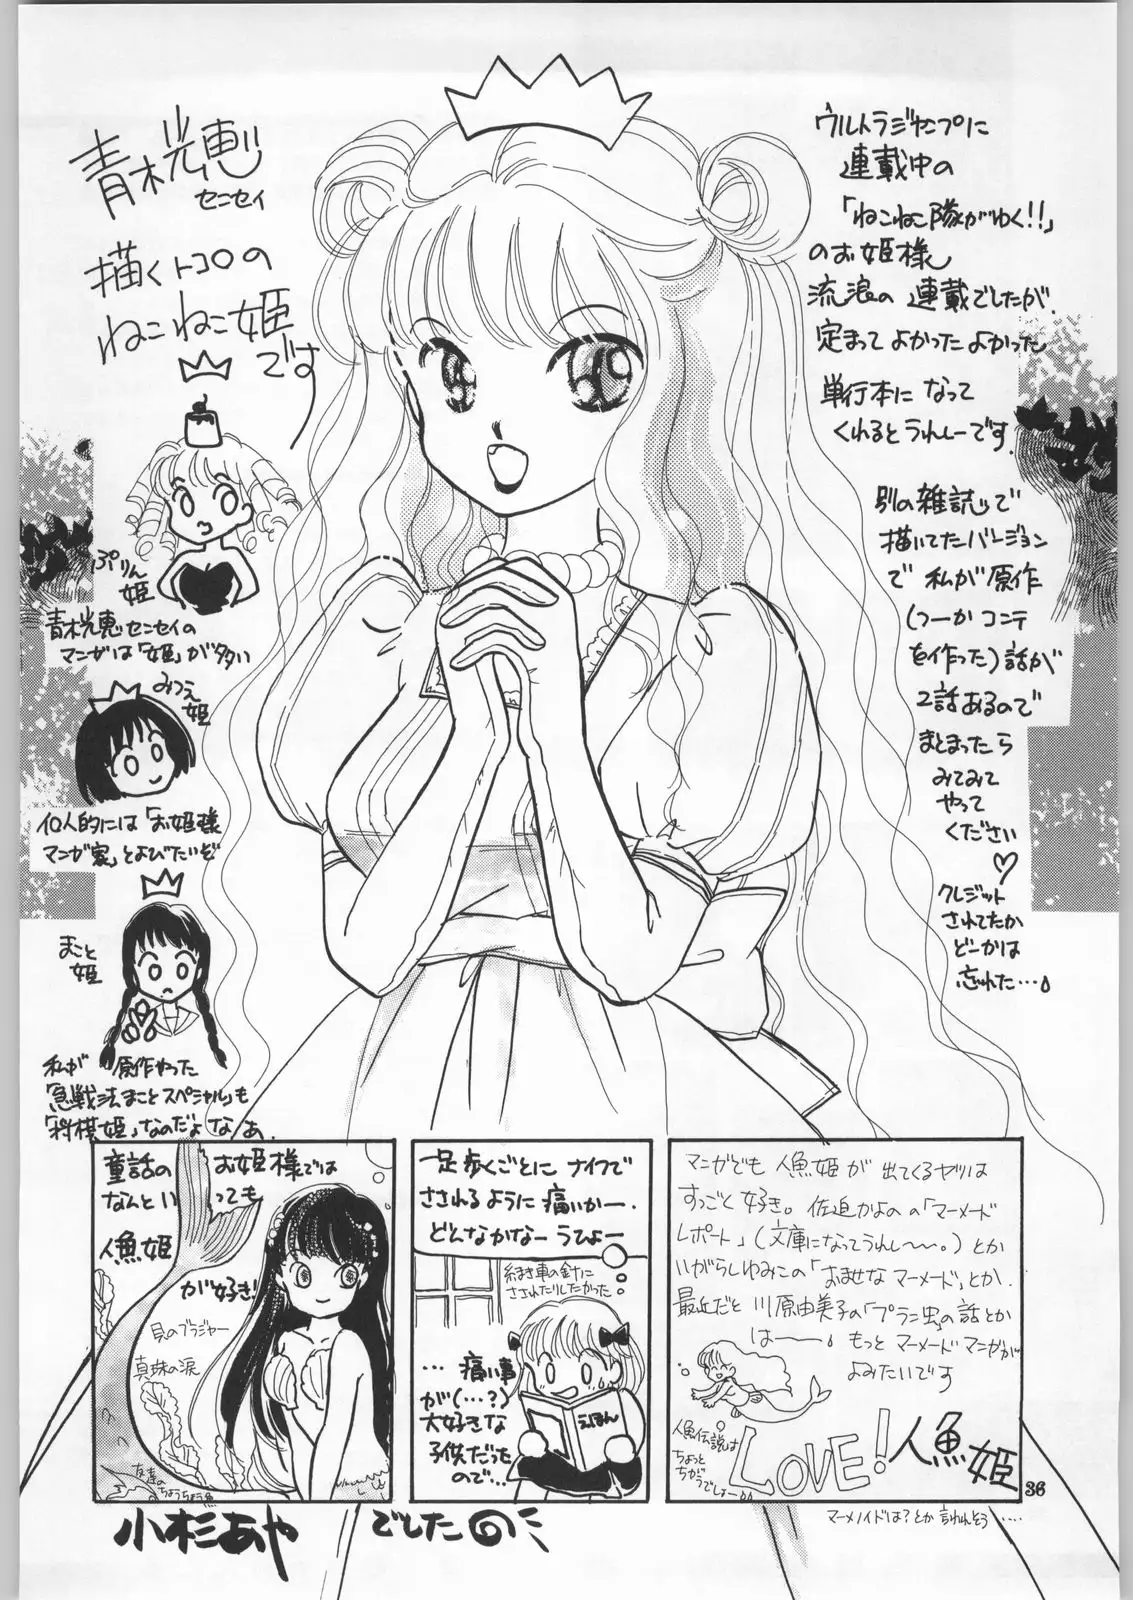 青木光恵
センセイ
描くトコロの
ねこねこ姫
です
ウルトラジャンプに
連載中の
「ねこねこ隊がゆく!!」
のお姫様
流浪の連載でしたが、
定まってよかったよかった
単行本になって
くれるとうれしーです。
別の雑誌で
描いてたバージョン
で私が原作
(つーかコンテ
を作った)話が
2話あるので
まとまったら
みてみて
やって
ください
♡
クレジット
されてたか
どーかは
忘れた…
ぷりん
姫
青木光恵センセイの
マンガは「姫」が多い
みつえ
姫
個人的には「お姫様
マンガ家」とよびたいぞ
まこと
姫
私が原作やった
「急戦法まことスペシャル」も
「将棋姫」なのだよなぁ
童話のお姫様では
なんといっても
人魚姫
が好き!
貝のブラジャー
真珠の涙
友達の
ちょうちょう魚
一足歩くごとにナイフで
さされるように痛いかー.
どんなかなーうひょー
糸まき車の針に
さされたりしたかった
…痛い事
が(…?)
大好きな
子供だった
ので…
えほん
マンガでも人魚姫が出てくるヤツは
すっごく好き。佐迫かよのの「マーメード
レポート」(文庫になってうれし〜〜。)とか
いがらしゆみこの「おませなマーメード」とか.
最近だと川原由美子の「プラニ虫」の話とか
はーーー。もっとマーメードマンガが
よみたいです
人魚伝説は
ちょっと
ちがう
でしょー
LOVE!人魚姫
36
小杉あや
でしたのミ
マーメノイドは?とか言われそう….